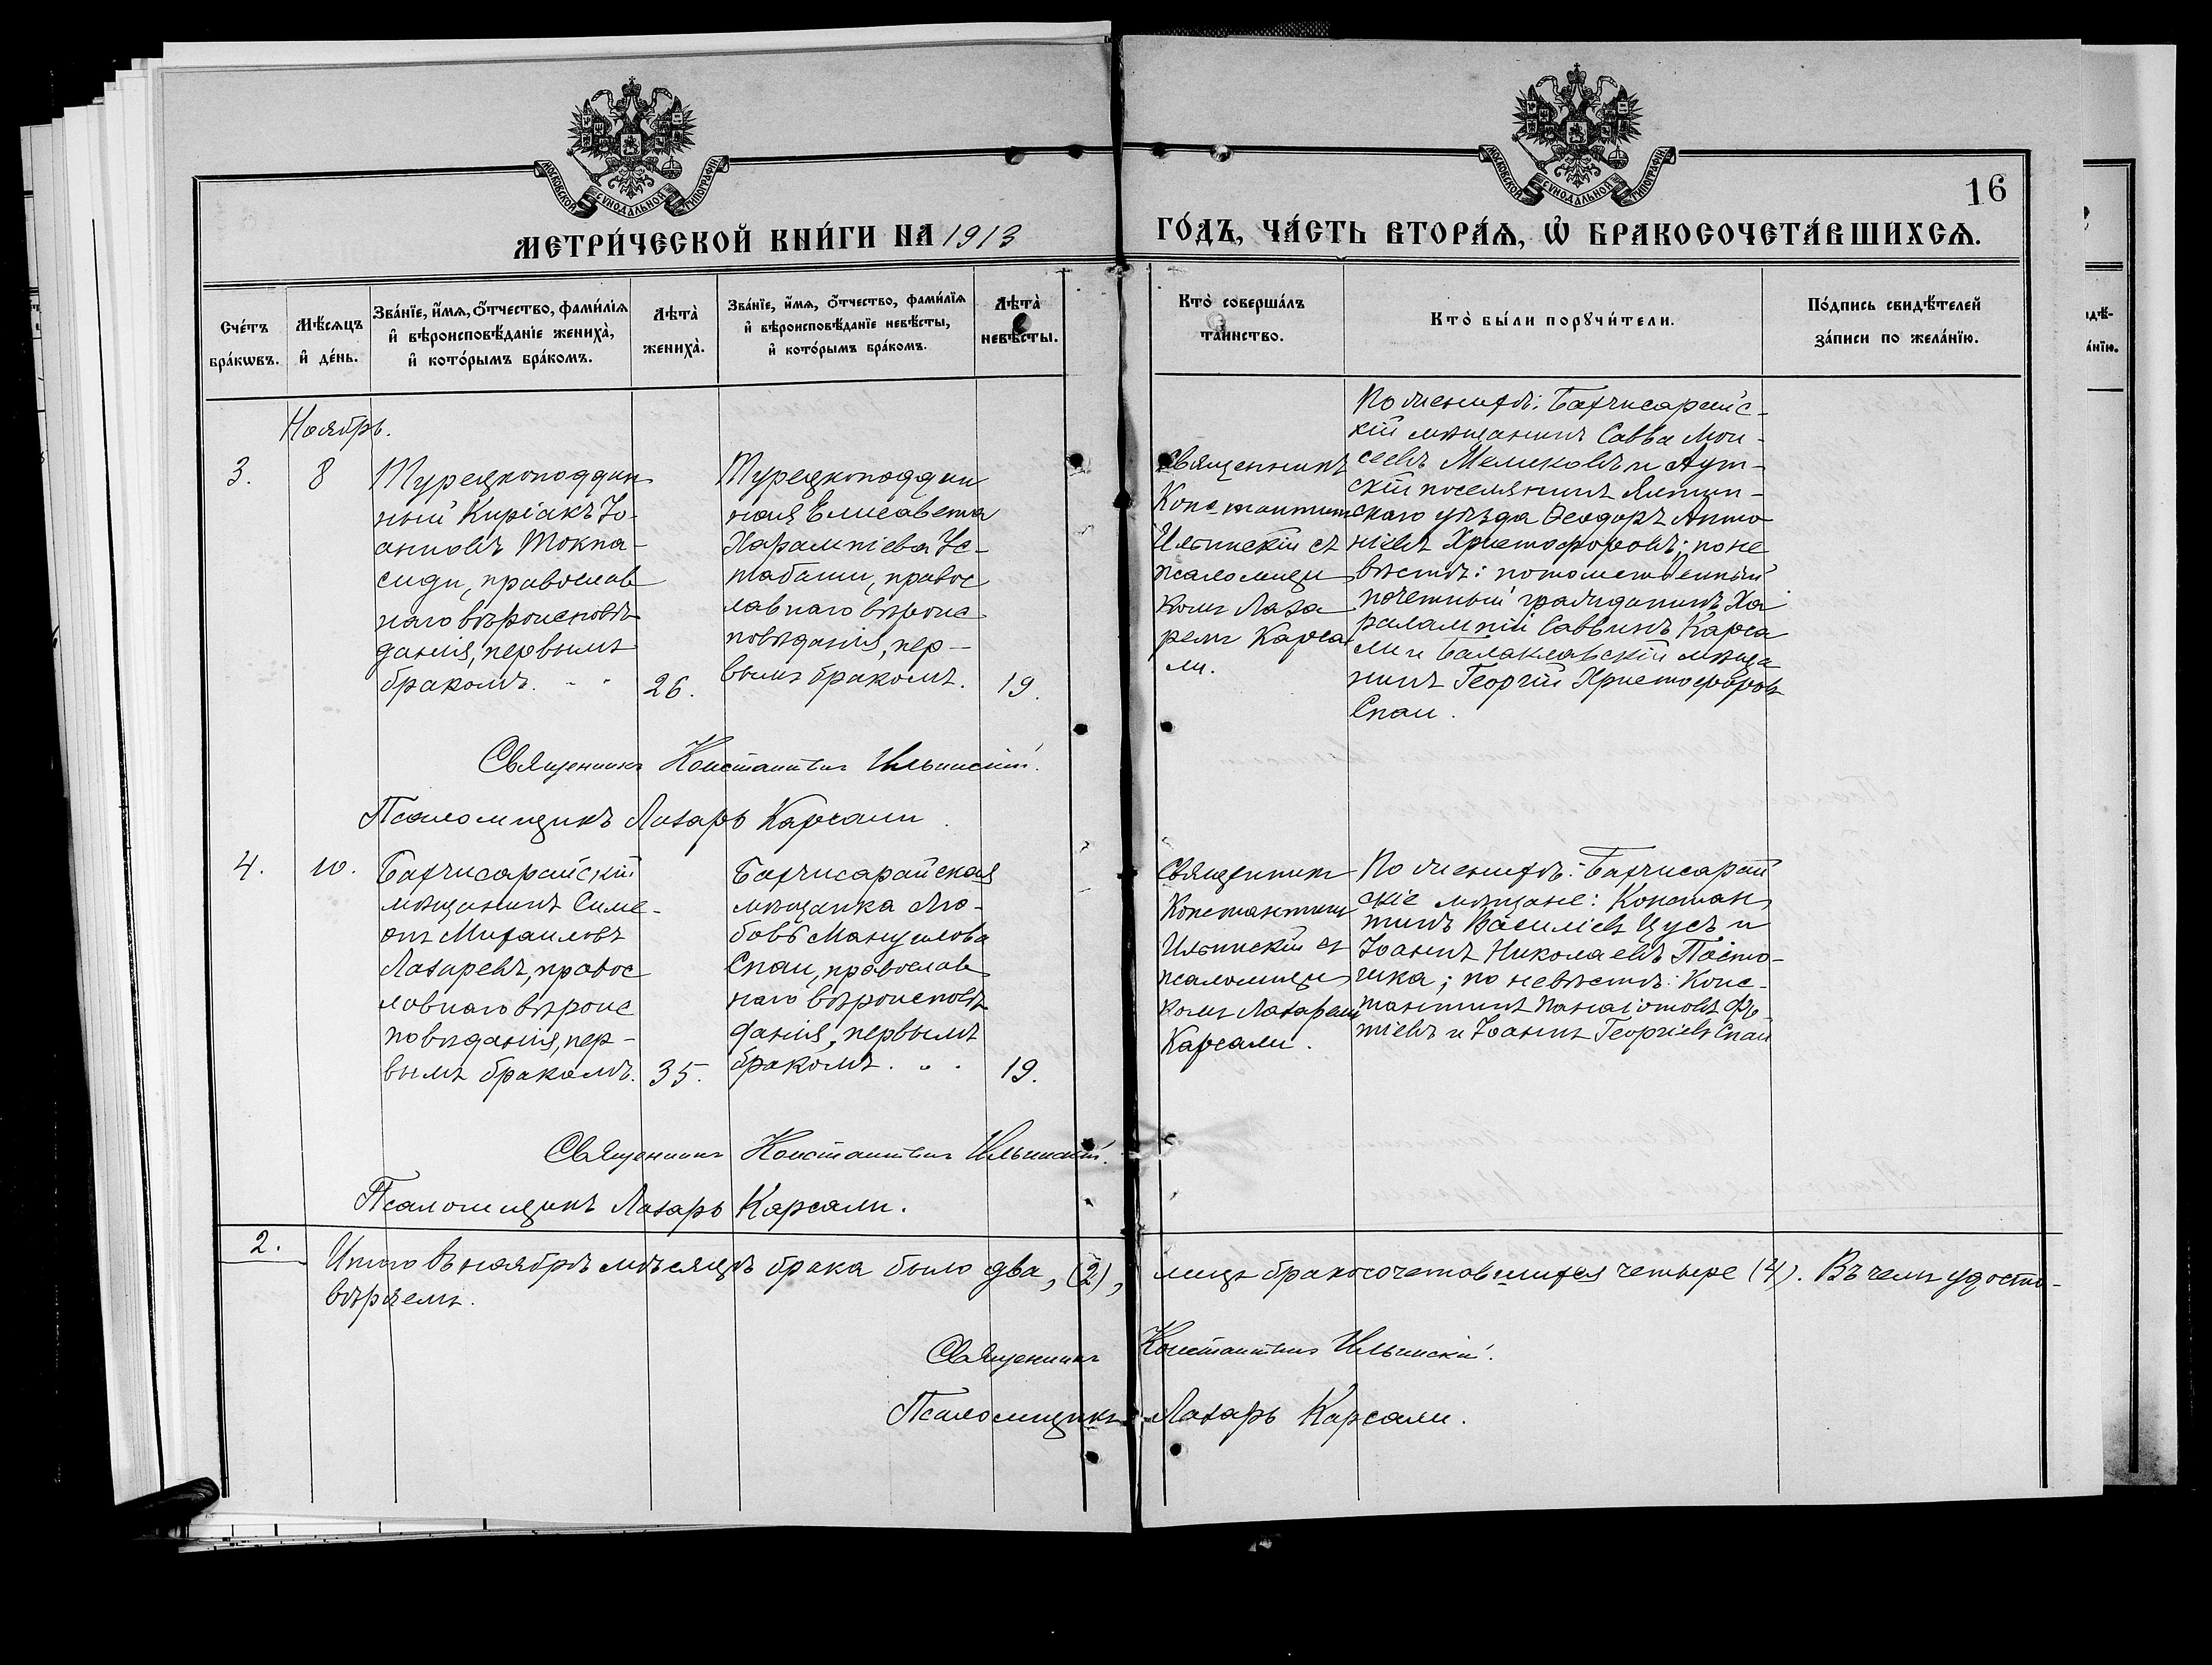 МОСКОВСКОЙ СУНОДАЛЬНОЙ ТИПОГРАФІИ
МОСКОВСКОЙ СУНОДАЛЬНОЙ ТИПОГРАФІИ
16
МЕТРИ́ЧЕСКОЙ КНИ́ГИ НА 1913
ГО́ДЪ, ЧА́СТЬ ВТОРА́Ѧ, Ѡ҆ БРАКОСОЧЕТА́ВШИХСѦ.
Сче́тъ бра́кѡвъ.
Мѣ́сѧцъ и҆ де́нь.
Зва́нїе, и҆́мѧ, ѻ҆́тчество, фами́лїѧ
и҆ вѣроисповѣ́данїе жениха̀,
и҆ кото́рымъ бра́комъ.
Лѣта̀
жениха̀.
Зва́нїе, и҆́мѧ, ѻ҆́тчество, фами́лїѧ
и҆ вѣроисповѣ́данїе невѣ́сты,
и҆ кото́рымъ бра́комъ.
Лѣта̀
невѣ́сты.
Кто̀ соверша́лъ
та́инство.
Кто̀ бы́ли порꙋчи́тели.
По́дпись свидѣ́телей
за́писи по жела́нїю.
Ноябрь.
3.
8
Турецкоподдан
ный Киріакъ Іо-
анновъ Токпа-
сиди, православ
наго вѣроисповѣ
данія, первымъ
бракомъ.
26.
Турецкоподдан
ная Елисавета
Харалампіева Ус-
табаши, правос
лавнаго вѣроис
повѣданія, пер-
вымъ бракомъ.
19.
Священникъ
Константинъ
Ильинскій съ
псаломщи
комъ Лаза
ремъ Карса
ли.
По женихѣ: Бахчисарайс-
кій мѣщанинъ Савва Мои-
сеевъ Меликовъ и Аут-
скій поселянинъ Ялтин-
скаго уѣзда Ѳеодоръ Анто
ніевъ Христофоровъ; по не
вѣстѣ: потомственный
почетный гражданинъ Ха
ралампій Саввинъ Карса
ли и Балаклавскій мѣща
нинъ Георгій Христофоровъ
Спаи.
Священникъ Константинъ Ильинскій.
Псаломщикъ Лазарь Карсали.
4.
10.
Бахчисарайскій
мѣщанинъ Симе-
онъ Михаиловъ
Лазаревъ, правос
лавнаго вѣроис
повѣданія, пер-
вымъ бракомъ.
35.
Бахчисарайская
мѣщанка Лю-
бовь Мануилова
Спаи, православ
наго вѣроисповѣ
данія, первымъ
бракомъ.
19.
Священникъ
Константинъ
Ильинскій съ
псаломщи
комъ Лазаремъ
Карсали.
По женихѣ: Бахчисарай
скіе мѣщане: Констан
тинъ Василіевъ Цусъ и
Іоаннъ Николаевъ
по невѣстѣ: Конс-
тантинъ Панаіотовъ
и Іоаннъ Георгіевъ Спаи
Священникъ Константинъ Ильинскій.
Псаломщикъ Лазарь Карсали.
2.
Итого въ ноябрѣ мѣсяцѣ брака было два, (2), лицъ бракосочетавшихся четыре (4). Въ чемъ удосто-
вѣряемъ.
Священникъ Константинъ Ильинскій.
Псаломщикъ Лазарь Карсали.